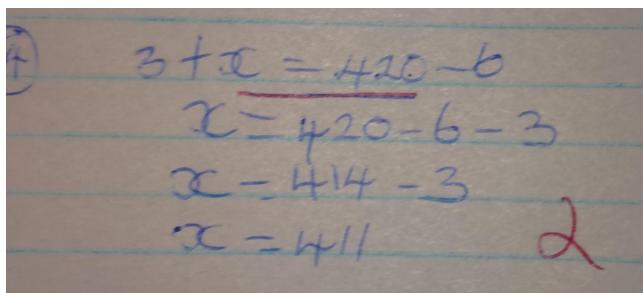 4
3 + x = 420 - 6
x = 420 - 6 - 3
x = 414 - 3
x = 411
2